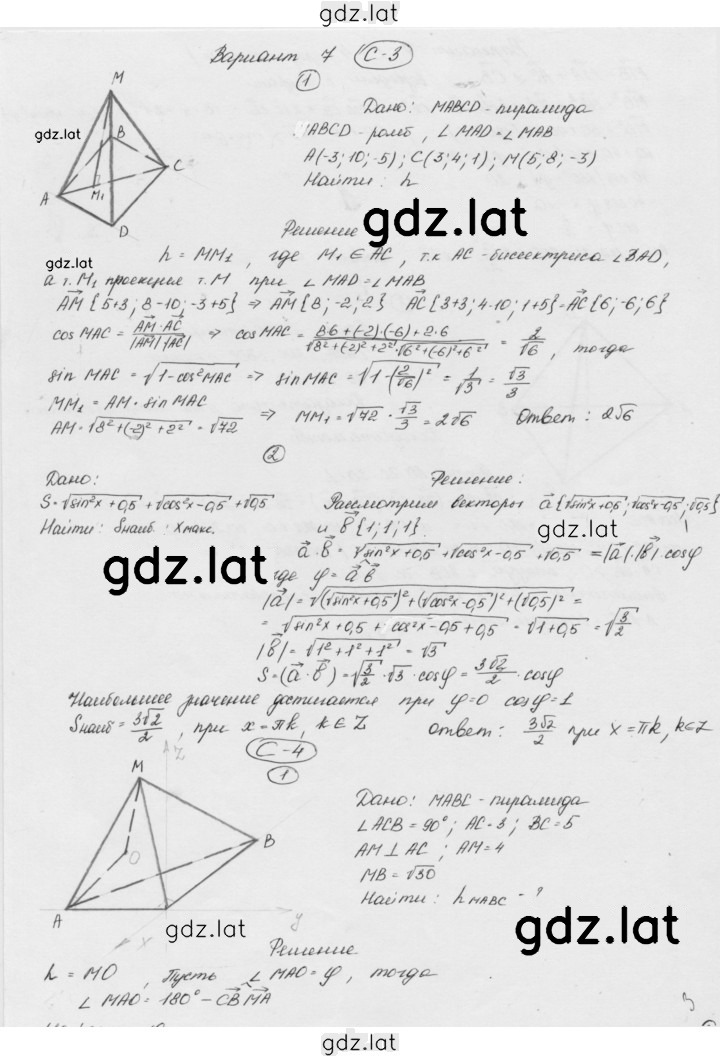 gdz.lat
Вариант 7 С-3
1
M
Дано: MABCD - пирамида
gdz.lat
B
ABCD - ромб, ∠MAD = ∠MAB
C
A(-3; 10; -5); C(3; 4; 1); M(5; 8; -3)
A
M₁
Найти: h
D
gdz.lat
Решение
gdz.lat
h = MM₁, где M₁ ∈ AC, т.к AC - биссектриса ∠BAD,
а т. M₁ проекция т. M при ∠MAD = ∠MAB
AM {5+3; 8-10; -3+5} ⇒ AM {8; -2; 2} AC {3+3; 4-10; 1+5} = AC {6; -6; 6}
cos MAC = AM·AC / |AM||AC| ⇒ cos MAC = 8·6+(-2)·(-6)+2·6 / √8²+(-2)²+2²·√6²+(-6)²+6² = 2/√6, тогда
sin MAC = √1-cos²MAC ⇒ sin MAC = √1-(2/√6)² = 1/√3 = √3/3
MM₁ = AM · sin MAC
AM = √8²+(-2)²+2² = √72 ⇒ MM₁ = √72 · √3/3 = 2√6 Ответ: 2√6
2
Дано: Решение:
S = √sin²x+0,5 + √cos²x-0,5 + √0,5 Рассмотрим векторы a {√sin²x+0,5; √cos²x-0,5; √0,5}
Найти: Sнаиб; Xмакс. и b {1; 1; 1}.
gdz.lat
a · b = √sin²x+0,5 + √cos²x-0,5 + √0,5 = |a|·|b|·cosφ
gdz.lat
где φ = a b
|a| = √(√sin²x+0,5)²+(√cos²x-0,5)²+(√0,5)² =
= √sin²x+0,5 + cos²x-0,5+0,5 = √1+0,5 = √3/2
|b| = √1²+1²+1² = √3
S = (a · b) = √3/2 · √3 · cosφ = 3√2/2 · cosφ
Наибольшее значение достигается при φ=0 cosφ=1
Sнаиб = 3√2/2, при x = πk, k ∈ Z Ответ: 3√2/2 при x = πk, k ∈ Z
С-4
Z
1
M
Дано: MABC - пирамида
∠ACB = 90°; AC = 3; BC = 5
B
O
AM ⊥ AC; AM = 4
MB = √30
A
Найти: hMABC - ?
y
x
gdz.lat
gdz.lat
Решение
h = MO, Пусть ∠MAO = φ, тогда
∠MAO = 180° - CB MA
3
gdz.lat